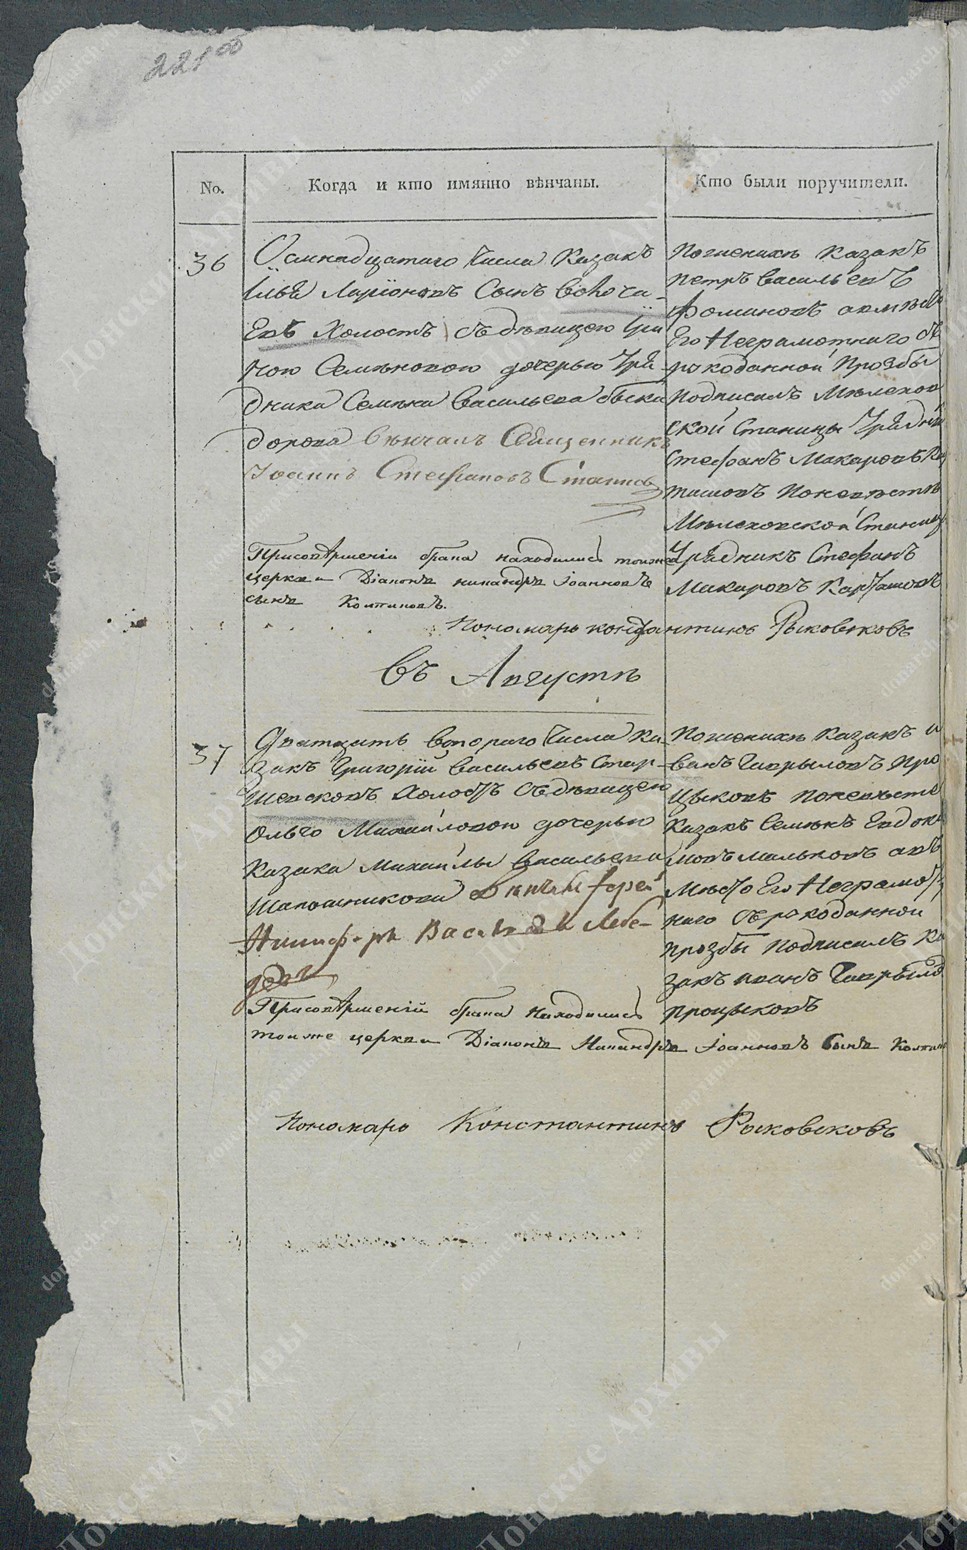 221 об
No.
Когда и кто имянно вѣнчаны.
Кто были поручители.
36
Осмнадцатаго Числа Казакъ
Илья Ларіоновъ Сынъ
Холостъ съ дѣвицею Ири
ною Семѣновою дочерью Уря
дника Семѣна Васильева
Венчалъ Священникъ
Іоаннъ Стефановъ
Присовершеніи брака находились тоиже
церкви Діаконъ никандръ Іоанновъ
сынъ
Пономарь константинъ Рыковсковъ
Поженихѣ Казакъ
петръ васильевъ
Фоминовъ авмѣсто
Его Неграмотнаго съ
рукоданной Прозбы
Подписалъ Мѣлехов
ской Станицы Урядни
Стефанъ Макаровъ Ка
Поневѣстѣ
Мѣлеховской Станицы
Урядникъ Стефанъ
Макаровъ
въ Августѣ
37
Дватцать втораго Числа Ка-
закъ Григорій Васильевъ Стар-
Холостъ съ дѣвицею
Ольгою Михайловою дочерью
Казака Михайлы Васильева
Шапошникова Венчалъ Іерей
Никифоръ Василевъ Лебе-
девъ
Присовершеніи брака Находились
тоиже церкви Діаконъ Никандръ Іоанновъ Сынъ
Пономарь Константинъ Рыковсковъ
Поженихѣ Казакъ и
ванъ Гаврыловъ Про
цыковъ Поневѣсте
Казакъ Семѣнъ Евдоки
мовъ мальковъ авъ
Мѣсто Его Неграмот
наго съ рукоданной
прозбы Подписалъ Ка
закъ иванъ Гаврыловъ
процыковъ
Донские Архивы
donarch.ru